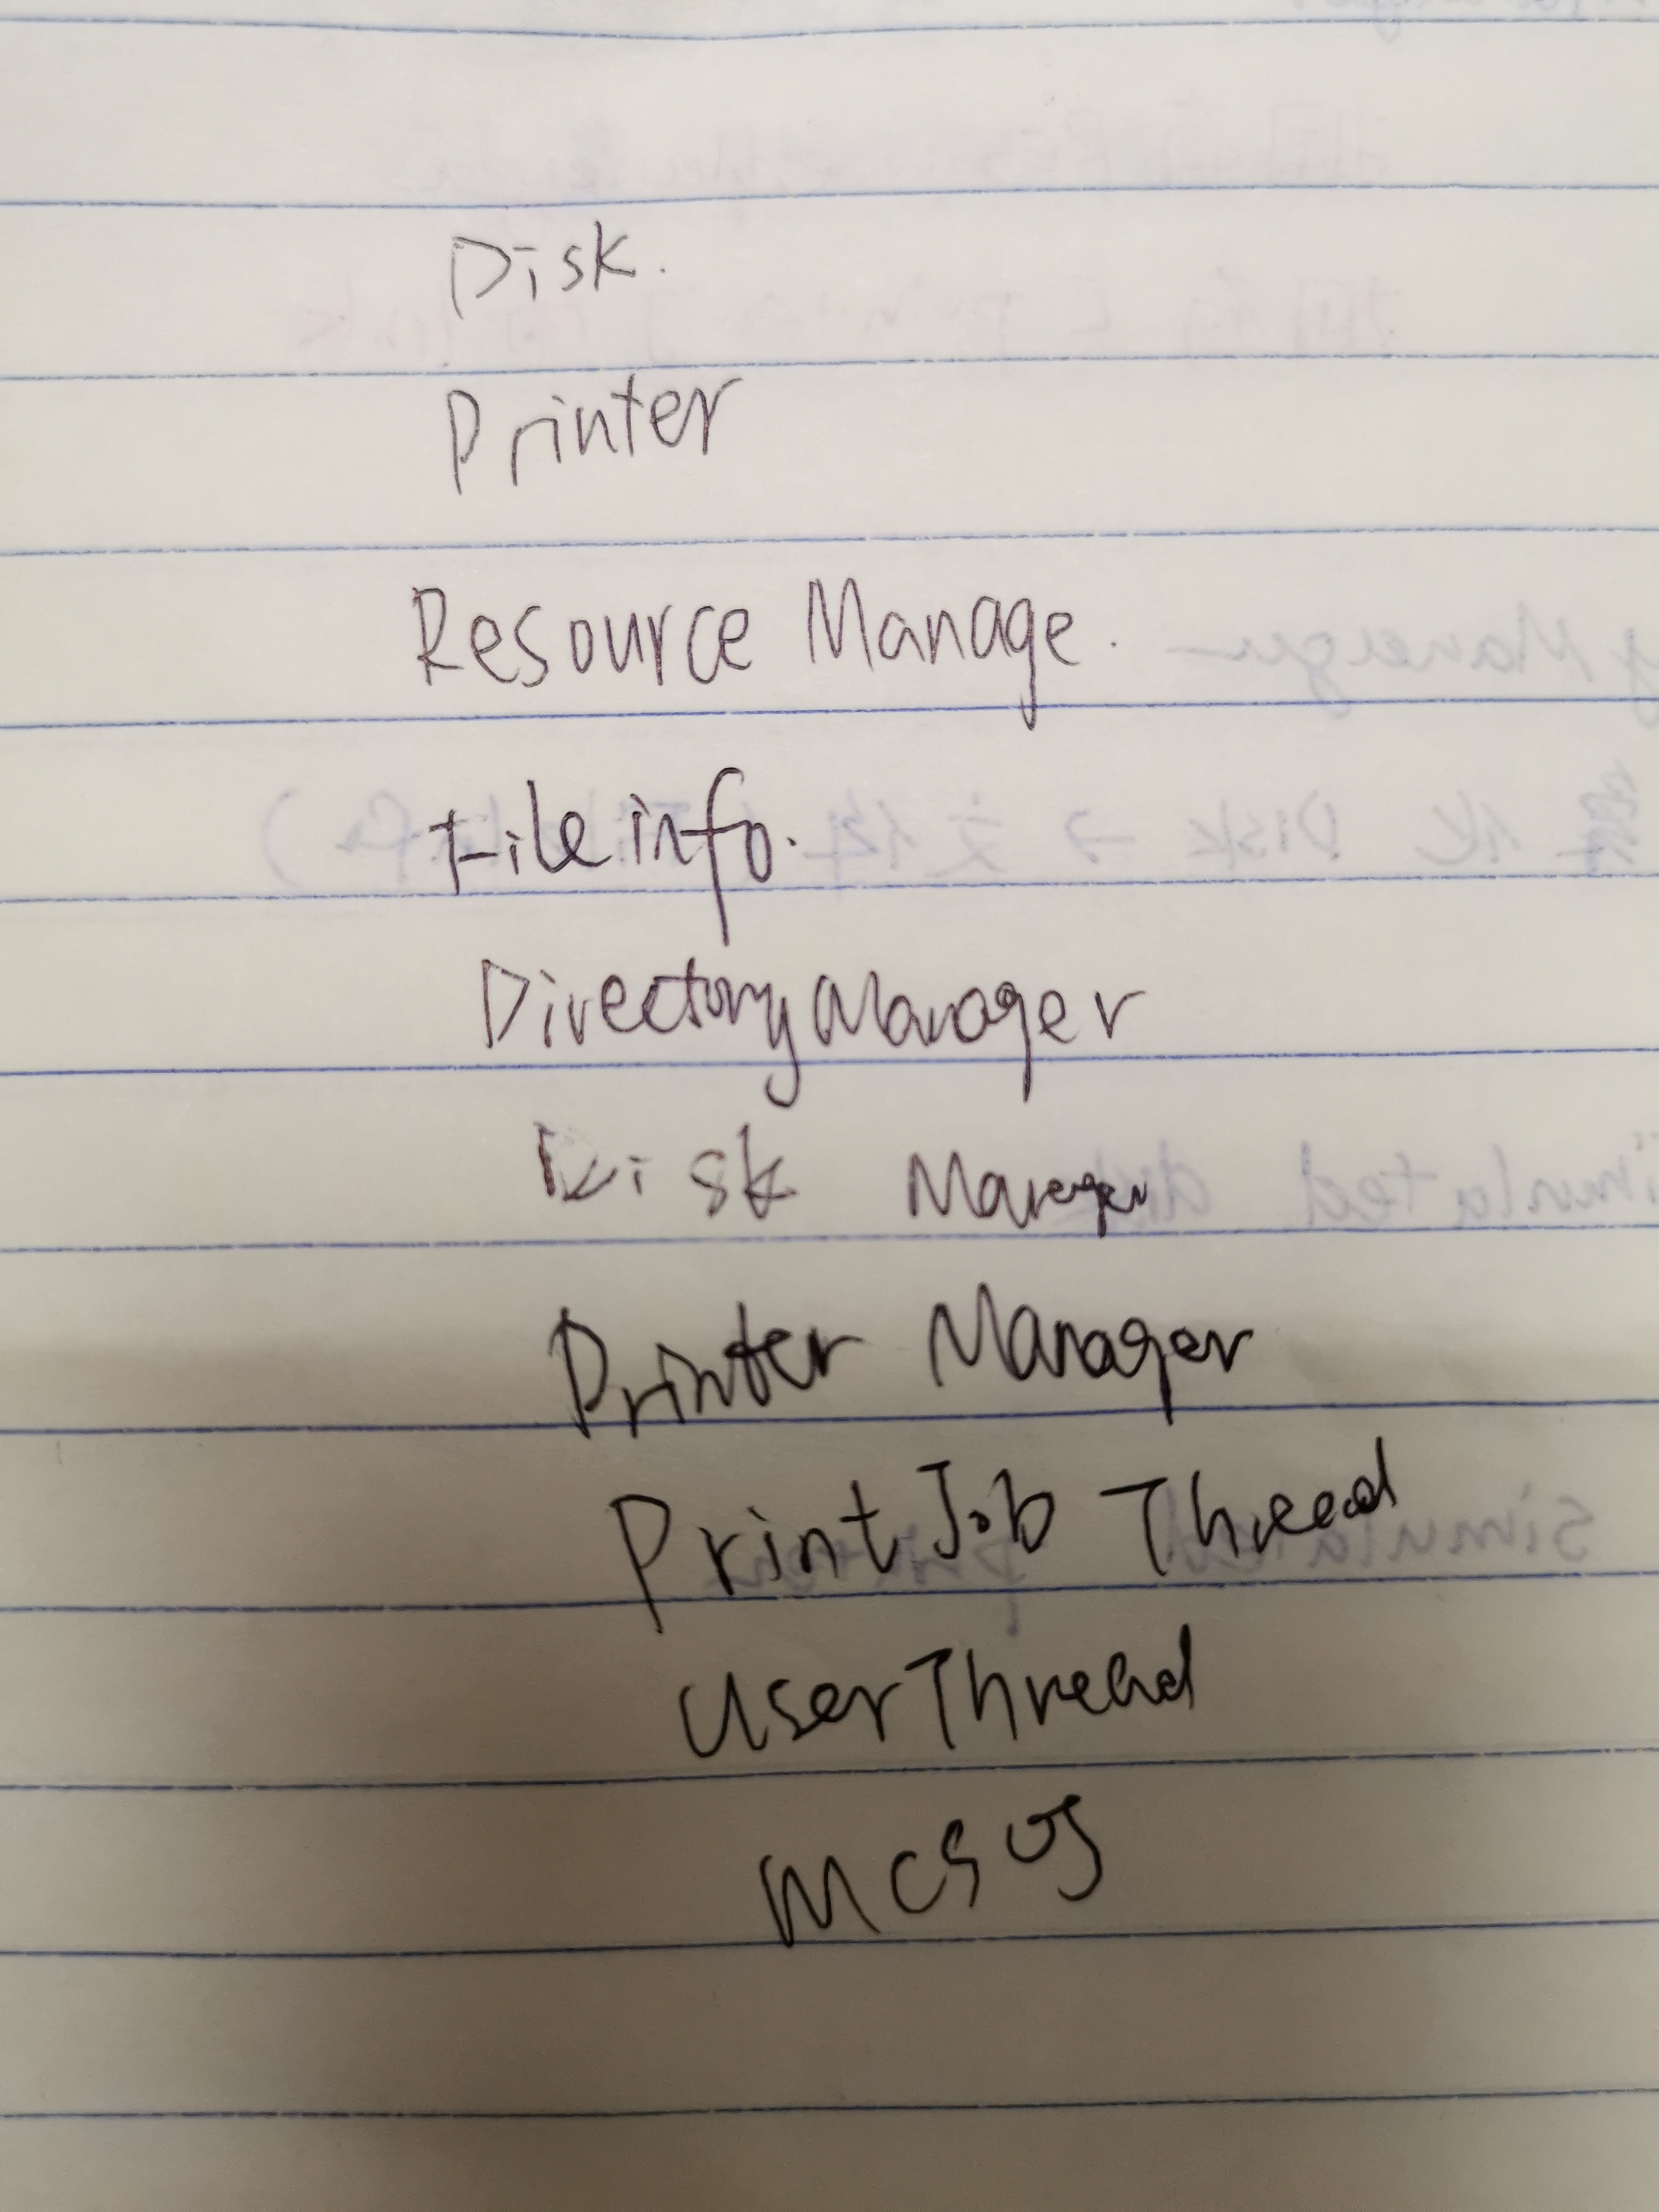 Disk.
Printer
Resource Manage.
Fileinfo.
DirectoryManager
Disk Manager
Printer Manager
PrintJob Thread
UserThread
MCSOS